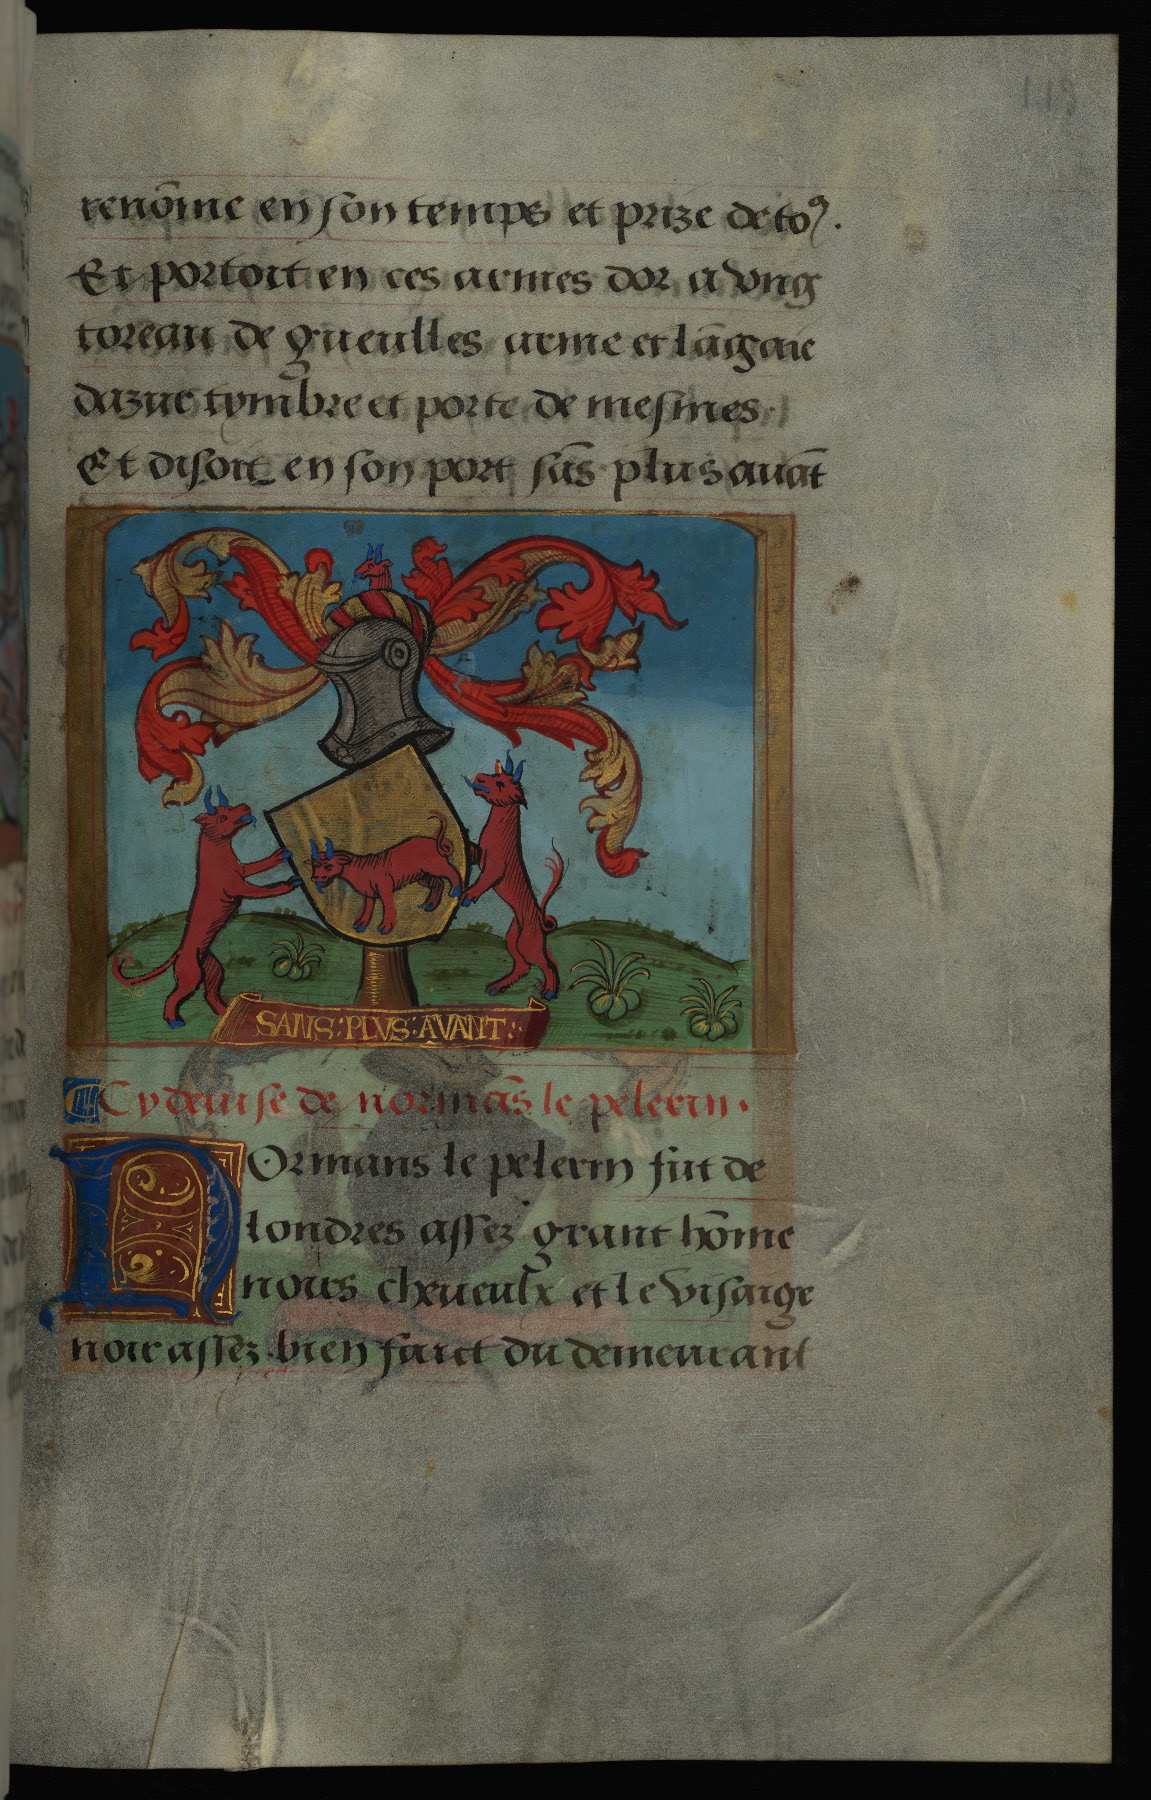 119
renōme en son temps et prize de toꝰ.
Et portoit en ces armes dor a vng
toreau de gueulles arme et lāgaie
dazur tymbre et porte de mesmes.
Et disoit en son port sās plus auāt
SANS : PLVS : AVANT :
Cy deuise de normās le pelerin .
NOrmans le pelerin fut de
londres assez grant hōme
noirs cheueulx et le visaige
noir assez bien faict du demeurant